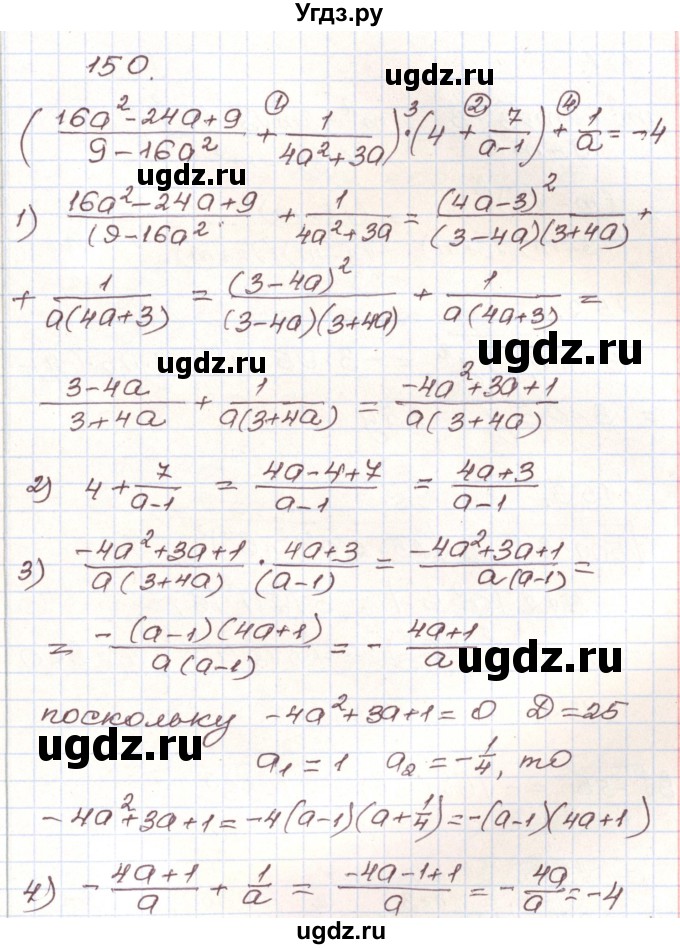 Угдз.ру
150.
ugdz.ru
( (16a² - 24a + 9)/(9 - 16a²) +① 1/(4a² + 3a) ) ·③ ( 4 +② 7/(a - 1) ) +④ 1/a = -4
ugdz.ru
1) (16a² - 24a + 9)/((9 - 16a²) + 1/(4a² + 3a) = (4a - 3)²/((3 - 4a)(3 + 4a)) +
+ 1/(a(4a + 3)) = (3 - 4a)²/((3 - 4a)(3 + 4a)) + 1/(a(4a + 3)) =
ugdz.ru
ugdz.ru
(3 - 4a)/(3 + 4a) + 1/(a(3 + 4a)) = (-4a² + 3a + 1)/(a(3 + 4a))
2) 4 + 7/(a - 1) = (4a - 4 + 7)/(a - 1) = (4a + 3)/(a - 1)
ugdz.ru
3) (-4a² + 3a + 1)/(a(3 + 4a)) · (4a + 3)/(a - 1) = (-4a² + 3a + 1)/(a(a - 1)) =
= -(a - 1)(4a + 1)/(a(a - 1)) = - (4a + 1)/a
ugdz.ru
поскольку -4a² + 3a + 1 = 0 D = 25
ugdz.ru
a₁ = 1 a₂ = -1/4, то
-4a² + 3a + 1 = -4(a - 1)(a + 1/4) = -(a - 1)(4a + 1)
ugdz.ru
4) - (4a + 1)/a + 1/a = (-4a - 1 + 1)/a = - 4a/a = -4
ugdz.ru